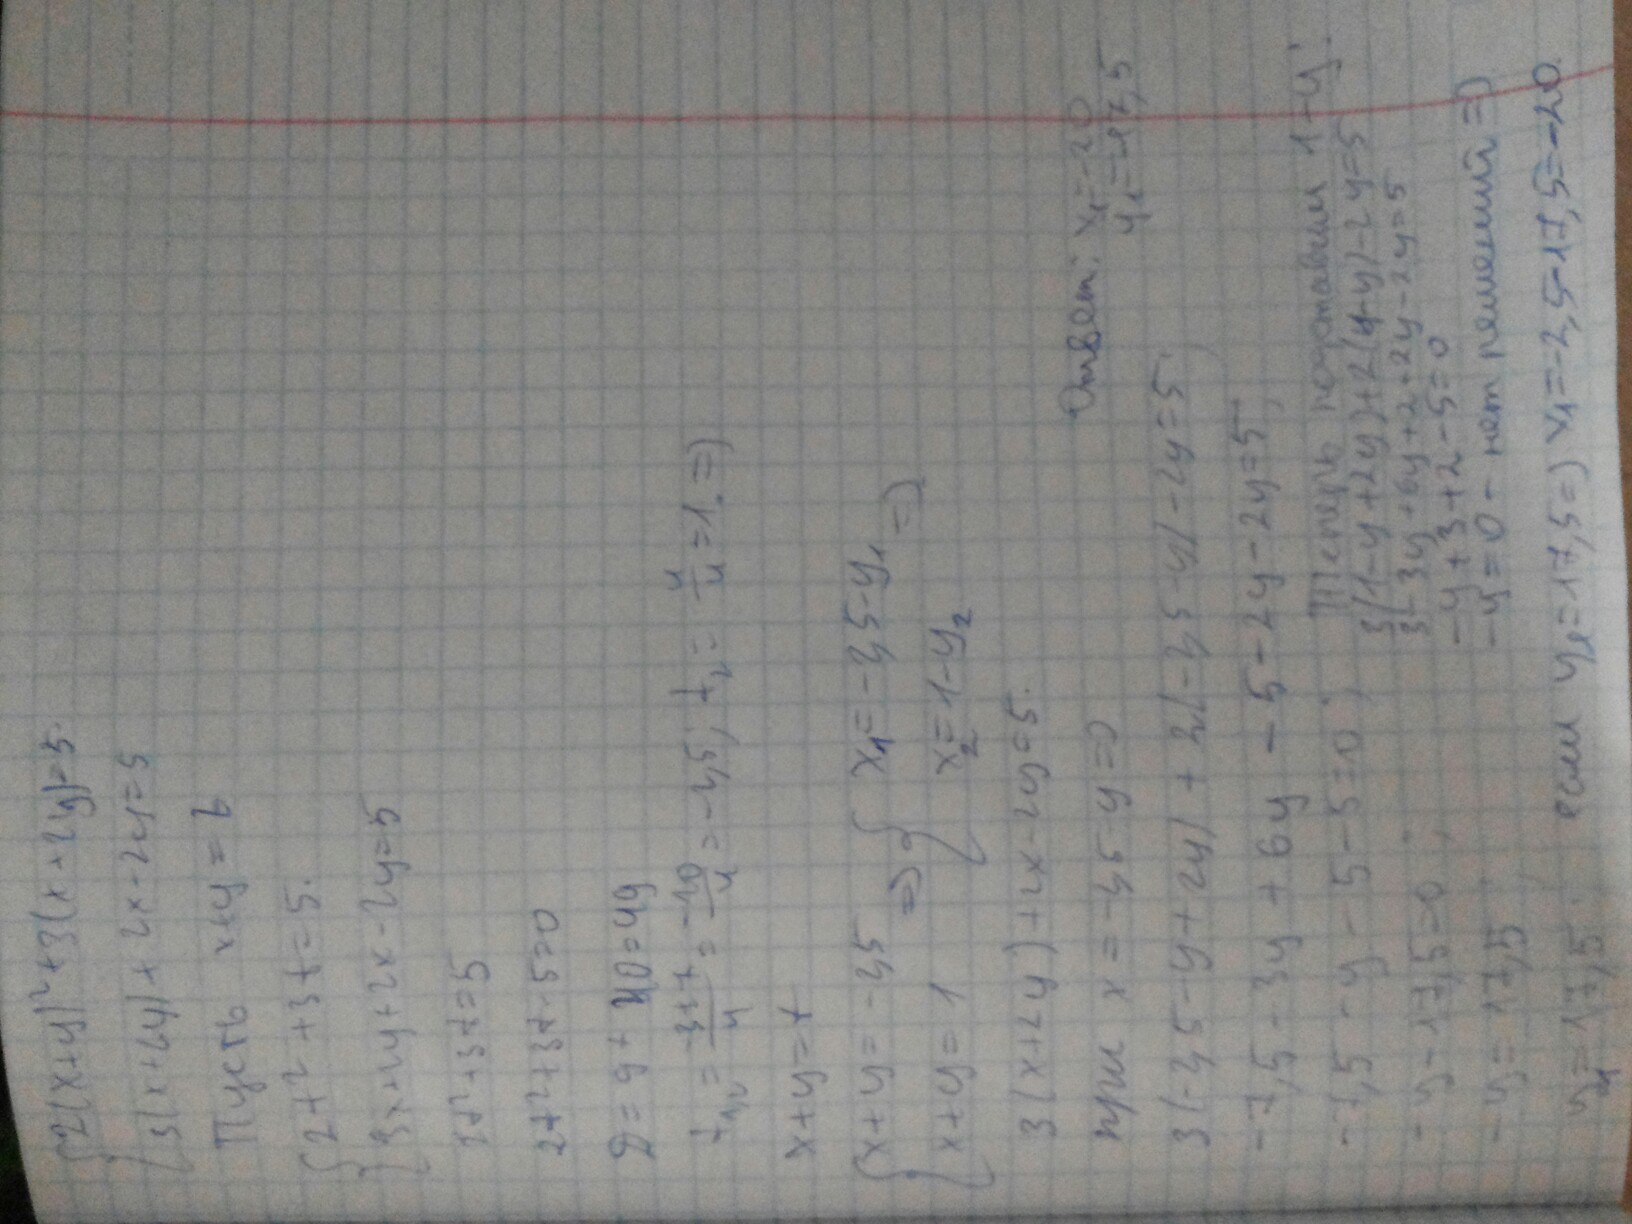 {2(x+y)²+3(x+2y)=5.
{3(x+2y)+2x-2y=5
Пусть x+y=t
{2t²+3t=5.
{3x+2y+2x-2y=5
2t²+3t=5
2t²+3t-5=0
D=9+40=49
t₁,₂=(-3±7)/4=-10/4=-2,5; t₂=4/4=1. =>
x+y=t
{x+y=-2,5 => {x₁=-2,5-y₁ =>
{x+y=1 {x₂=1-y₂
3(x+2y)+2x-2y=5.
при x=-2,5-y=>
3(-2,5-y+2y)+2(-2,5-y)-2y=5;
-7,5-3y+6y-5-2y-2y=5;
-7,5-y-5-5=0;
-y-17,5=0;
-y=17,5
y₁=17,5.
Ответ: x₁=-20
y₁=-17,5
Теперь подставим 1-y:
3(1-y+2y)+2(1-y)-2y=5
3-3y+6y+2+2y-2y=5
-y+3+2-5=0
-y=0-нет решений =>
если y₁=17,5=> x₁=-2,5-17,5=-20.